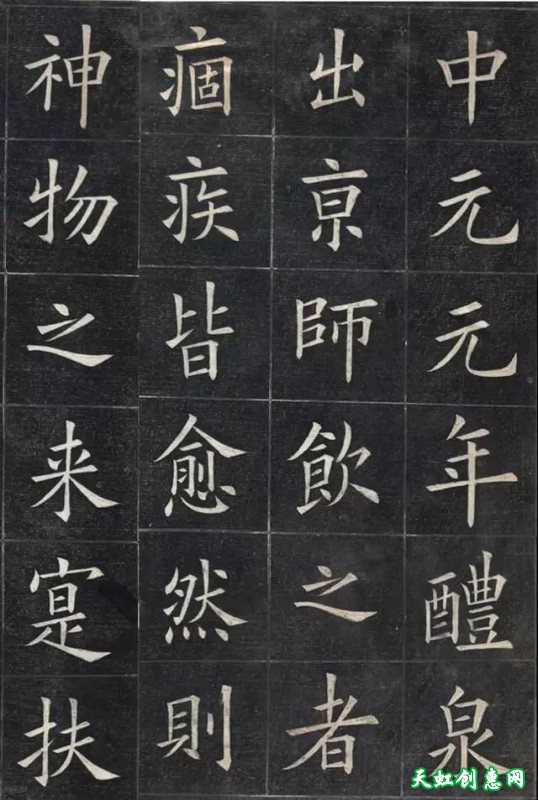 中元元年醴泉
出京師飲之者
痼疾皆愈然則
神物之来寔扶
天虹创惠网